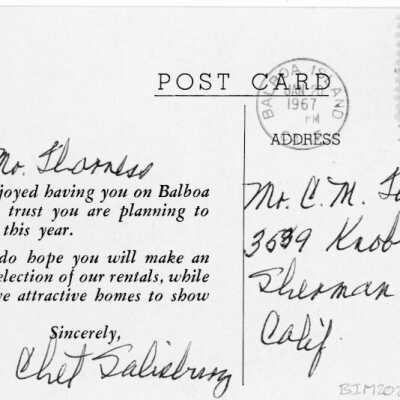 POST CARD
BALBOA ISLAND
JAN
1967
PM
ADDRESS
Mr. Tharness
joyed having you on Balboa
trust you are planning to
this year.
do hope you will make an
election of our rentals, while
ve attractive homes to show
Sincerely,
Chet Salisbury
Mr. C. M.
3539 Knob
Sherman
Calif.
BIM202